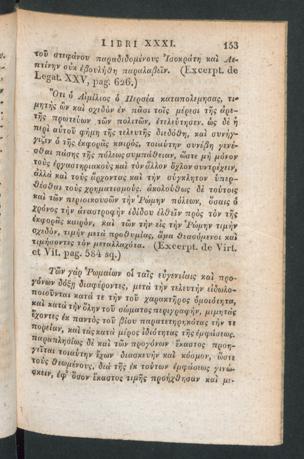 LIBRI XXXI. 153
τοῦ στεφάνου παραδιδομένους Ἰσοκράτη καὶ Λε-
πτίνην οὐκ ἐβουλήθη παραλαβεῖν. (Excerpt. de
Legat. XXV, pag. 626.)
Ὅτι ὁ Αἰμίλιος ὁ Περσέα καταπολεμήσας, τι-
μητὴς ὢν καὶ σχεδὸν ἐν πᾶσι τοῖς μέρεσι τῆς ἀρε-
τῆς πρωτεύων τῶν πολιτῶν, ἐτελεύτησεν. ὡς δὲ ἡ
περὶ αὐτοῦ φήμη τῆς τελευτῆς διεδόθη, καὶ συνήγ-
γιζεν ὁ τῆς ἐκφορᾶς καιρὸς, τοιαύτην συνέβη γενέ-
σθαι πάσης τῆς πόλεως συμπάθειαν, ὥστε μὴ μόνον
τοὺς ἐργαστηριακοὺς καὶ τὸν ἄλλον ὄχλον συντρέχειν,
ἀλλὰ καὶ τοὺς ἄρχοντας καὶ τὴν σύγκλητον ὑπερ-
θέσθαι τοὺς χρηματισμούς. ἀκολούθως δὲ τούτοις
καὶ τῶν περιοικουσῶν τὴν Ῥώμην πόλεων, ὅσαις ὁ
χρόνος τὴν ἀναστροφὴν ἐδίδου ἐλθεῖν πρὸς τὸν τῆς
ἐκφορᾶς καιρὸν, καὶ τῶν τὴν εἰς τὴν Ῥώμην τιμὴν
σχεδὸν, τιμὴν μετὰ προθυμίας, ἅμα θεασόμενοι καὶ
τιμήσοντες τὸν μεταλλαχότα. (Excerpt. de Virt.
et Vit. pag. 584 sq.)
Τῶν γὰρ Ῥωμαίων οἱ ταῖς εὐγενείαις καὶ προ-
γόνων δόξῃ διαφέροντες, μετὰ τὴν τελευτὴν εἰδωλο-
ποιοῦνται κατά τε τὴν τοῦ χαρακτῆρος ὁμοιότητα,
καὶ κατὰ τὴν ὅλην τοῦ σώματος περιγραφὴν, μιμητὰς
ἔχοντες ἐκ παντὸς τοῦ βίου παρατετηρηκότας τήν τε
πορείαν, καὶ τὰς κατὰ μέρος ἰδιότητας τῆς ἐμφάσεως.
παραπλησίως δὲ καὶ τῶν προγόνων ἕκαστος προη-
γεῖται τοιαύτην ἔχων διασκευὴν καὶ κόσμον, ὥστε
τοὺς θεωμένους, διὰ τῆς ἐκ τούτων ἐμφάσεως γινώ-
σκειν, ἐφ᾽ ὅσον ἕκαστοι τιμῆς προήχθησαν καὶ με-